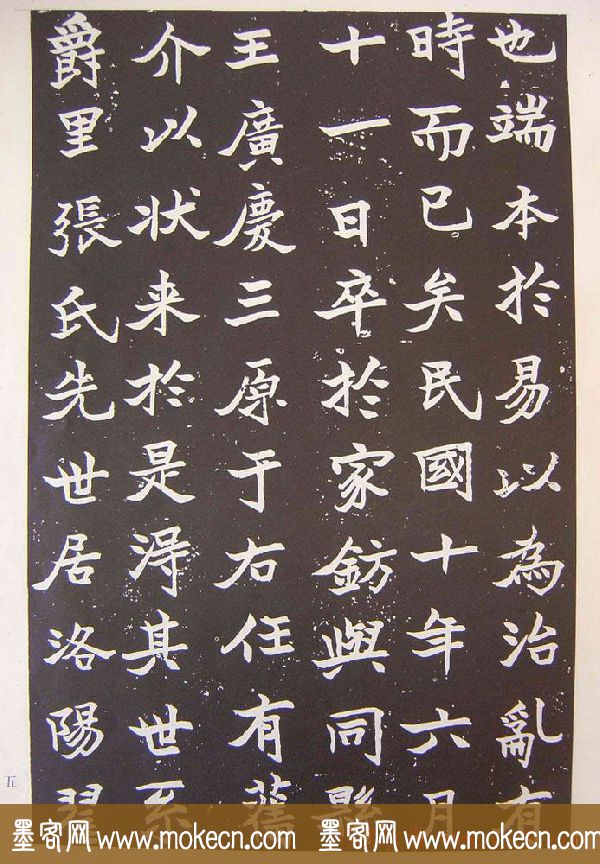 也端本於易以為治亂有
時而已矣民國十年六月
十一日卒於家鈁與同縣
王廣慶三原于右任有舊
介以状来於是淂其世系
爵里張氏先世居洛陽翟
五
墨客网 www.mokecn.com 墨客网 www.mokecn.com